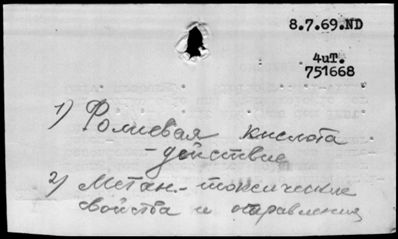 8.7.69.ND
4иТ.
751668
1) Фолиевая кислота
- действие
2) Метан - токсические
свойства и отравления